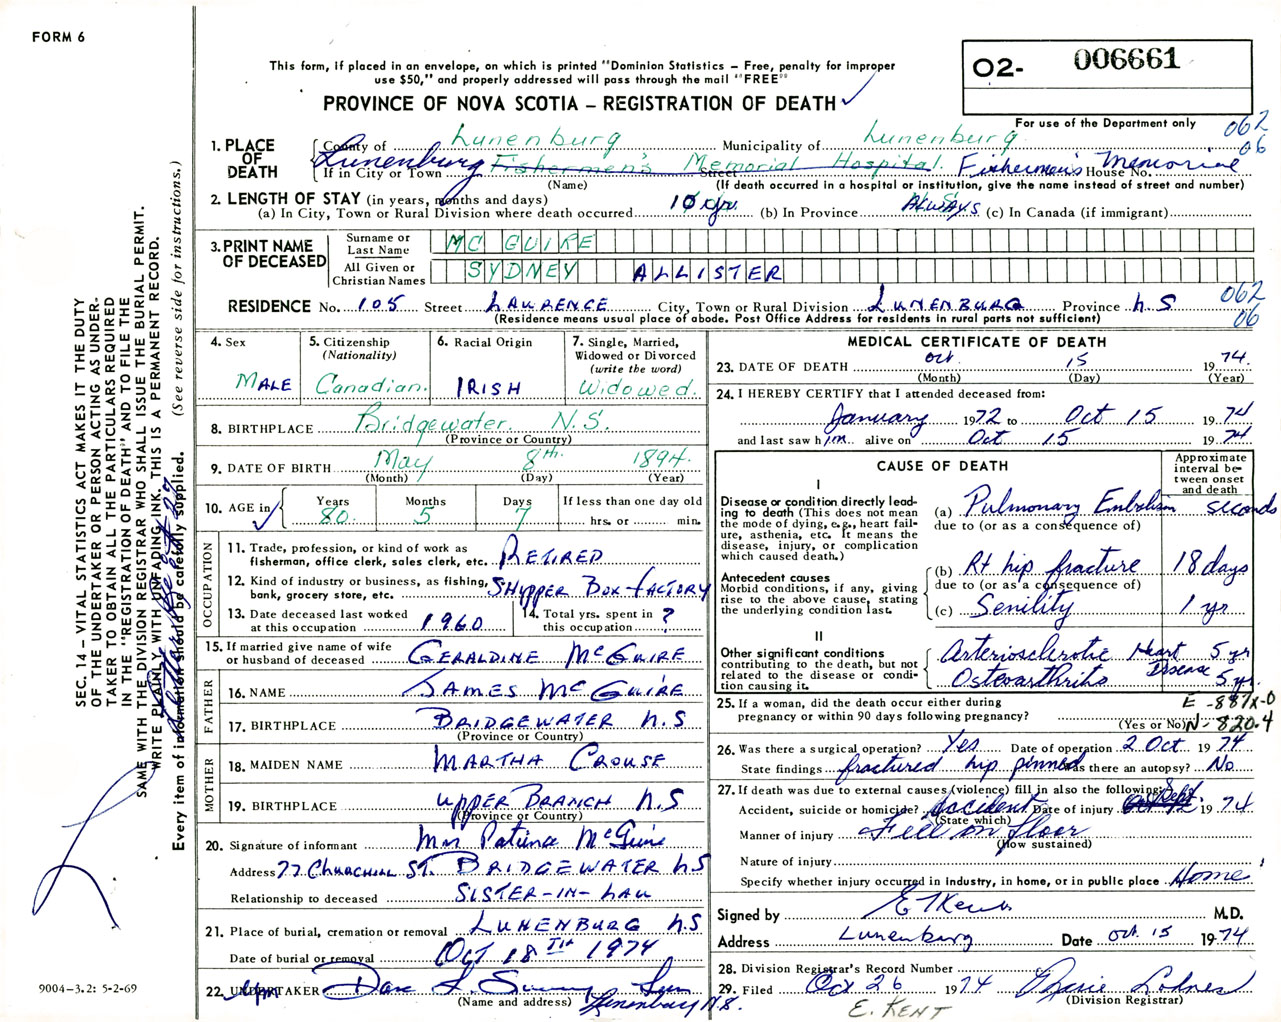 FORM 6
This form, if placed in an envelope, on which is printed "Dominion Statistics – Free, penalty for improper
use $50," and properly addressed will pass through the mail "FREE"
PROVINCE OF NOVA SCOTIA – REGISTRATION OF DEATH ✓
O2- 006661
For use of the Department only
062
06
1. PLACE OF DEATH
County of Lunenburg Municipality of Lunenburg
Lunenburg Fishermen's Memorial Hospital. Fishermen's Memorial
If in City or Town Street House No.
(Name) (If death occurred in a hospital or institution, give the name instead of street and number)
2. LENGTH OF STAY (in years, months and days)
(a) In City, Town or Rural Division where death occurred 10 yrs (b) In Province ALWAYS (c) In Canada (if immigrant)
3. PRINT NAME OF DECEASED
Surname or Last Name MC GUIRE
All Given or Christian Names SYDNEY ALLISTER
RESIDENCE No. 105 Street LAWRENCE City, Town or Rural Division LUNENBURG Province N.S
062
06
(Residence means usual place of abode. Post Office Address for residents in rural parts not sufficient)
4. Sex
MALE
5. Citizenship
(Nationality)
Canadian.
6. Racial Origin
IRISH
7. Single, Married,
Widowed or Divorced
(write the word)
Widowed.
8. BIRTHPLACE Bridgewater N.S.
(Province or Country)
9. DATE OF BIRTH May 8th. 1894.
(Month) (Day) (Year)
10. AGE in ✓
Years Months Days If less than one day old
80. 5 7 hrs. or min.
OCCUPATION
11. Trade, profession, or kind of work as
fisherman, office clerk, sales clerk, etc. RETIRED
12. Kind of industry or business, as fishing,
bank, grocery store, etc. SHIPPER BOX FACTORY
13. Date deceased last worked
at this occupation 1960
14. Total yrs. spent in
this occupation ?
15. If married give name of wife
or husband of deceased GERALDINE MCGUIRE
FATHER
16. NAME JAMES MCGUIRE
17. BIRTHPLACE BRIDGEWATER N.S
(Province or Country)
MOTHER
18. MAIDEN NAME MARTHA CROUSE
19. BIRTHPLACE UPPER BRANCH N.S
(Province or Country)
20. Signature of informant Mrs Patricia McGuire
Address 77 CHURCHILL ST. BRIDGEWATER NS
Relationship to deceased SISTER-IN-LAW
21. Place of burial, cremation or removal LUNENBURG N.S
Date of burial or removal OCT 18TH 1974
22. UNDERTAKER
(Name and address) Lunenburg N.S.
MEDICAL CERTIFICATE OF DEATH
23. DATE OF DEATH Oct. 15 1974.
(Month) (Day) (Year)
24. I HEREBY CERTIFY that I attended deceased from:
January 1972 to Oct 15 1974
and last saw him alive on Oct 15 1974
CAUSE OF DEATH
Approximate
interval be-
tween onset
and death
I
Disease or condition directly lead-
ing to death (This does not mean
the mode of dying, e.g., heart fail-
ure, asthenia, etc. It means the
disease, injury, or complication
which caused death.)
(a) Pulmonary Embolism seconds
due to (or as a consequence of)
Antecedent causes
Morbid conditions, if any, giving
rise to the above cause, stating
the underlying condition last.
(b) Rt hip fracture 18 days
due to (or as a consequence of)
(c) Senility 1 yr
II
Other significant conditions
contributing to the death, but not
related to the disease or condi-
tion causing it.
Arteriosclerotic Heart Disease 5 yr
Osteoarthritis 5 yr.
E -887X-0
N- 820.4
25. If a woman, did the death occur either during
pregnancy or within 90 days following pregnancy?
(Yes or No)
26. Was there a surgical operation? Yes Date of operation 2 Oct 1974
State findings fractured hip pinned Was there an autopsy? No
27. If death was due to external causes (violence) fill in also the following:
Accident, suicide or homicide? Accident Date of injury Sept. 1974
(State which)
Manner of injury Fell on floor
(How sustained)
Nature of injury
Specify whether injury occurred in industry, in home, or in public place Home
Signed by E Kent M.D.
Address Lunenburg Date Oct. 15 1974
28. Division Registrar's Record Number
29. Filed Oct 26 1974
(Division Registrar)
E. KENT
SEC. 14 – VITAL STATISTICS ACT MAKES IT THE DUTY
OF THE UNDERTAKER OR PERSON ACTING AS UNDER-
TAKER TO OBTAIN ALL THE PARTICULARS REQUIRED
IN THE "REGISTRATION OF DEATH" AND TO FILE THE
SAME WITH THE DIVISION REGISTRAR WHO SHALL ISSUE THE BURIAL PERMIT.
WRITE PLAINLY WITH UNFADING INK. THIS IS A PERMANENT RECORD.
Every item of information should be carefully supplied. (See reverse side for instructions.)
9004-3.2: 5-2-69